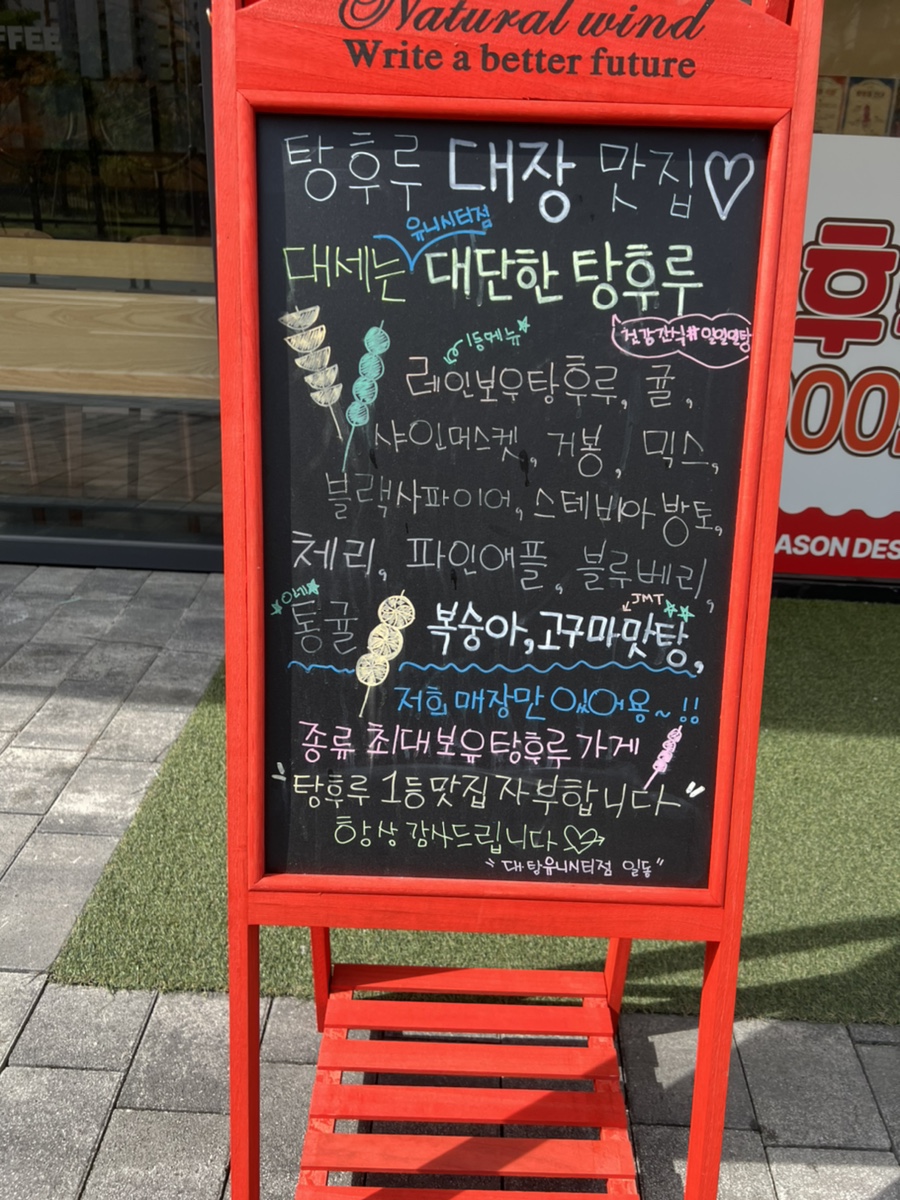 OFFEE
Natural wind
Write a better future
탕후루 대장 맛집♡
유니시티점
대세는 대단한 탕후루
건강간식#일일일탕
1등메뉴
레인보우탕후루, 귤,
샤인머스켓, 거봉, 믹스,
블랙사파이어, 스테비아 방토,
체리, 파인애플, 블루베리,
JMT
통귤 복숭아, 고구마맛탕,
저희 매장만 있어용~!!
종류 최대보유 탕후루 가게
"탕후루 1등맛집 자부합니다"
항상 감사드립니다
"대.탕유니시티점 일동"
후
00
ASON DES